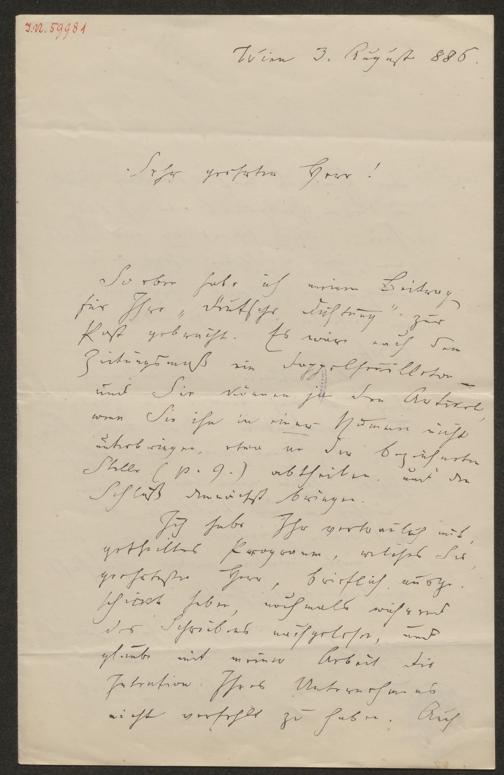 I.N. 59981
Wien 3. August 886.
Sehr geehrter Herr!
Soeben habe ich meinen Beitrag
für Ihre „Deutsche Dichtung" zur
Post gebracht. Es wäre nach dem
Zeitungsmaß ein Doppelfeuilleton –
und Sie können ja den Artikel,
wenn Sie ihn in einer Nummer nicht
unterbringen, etwa an der bezeichneten
Stelle (p. 9.) abtheilen und den
Schluß demnächst bringen.
Ich habe Ihr vertraulich mit-
getheiltes Programm, welches Sie,
geehrtester Herr, brieflich ausge-
schickt haben, nochmals während
des Schreibens nachgelesen, und
glaube mit meiner Arbeit die
Intention Ihres Unternehmens
nicht verfehlt zu haben. Auch